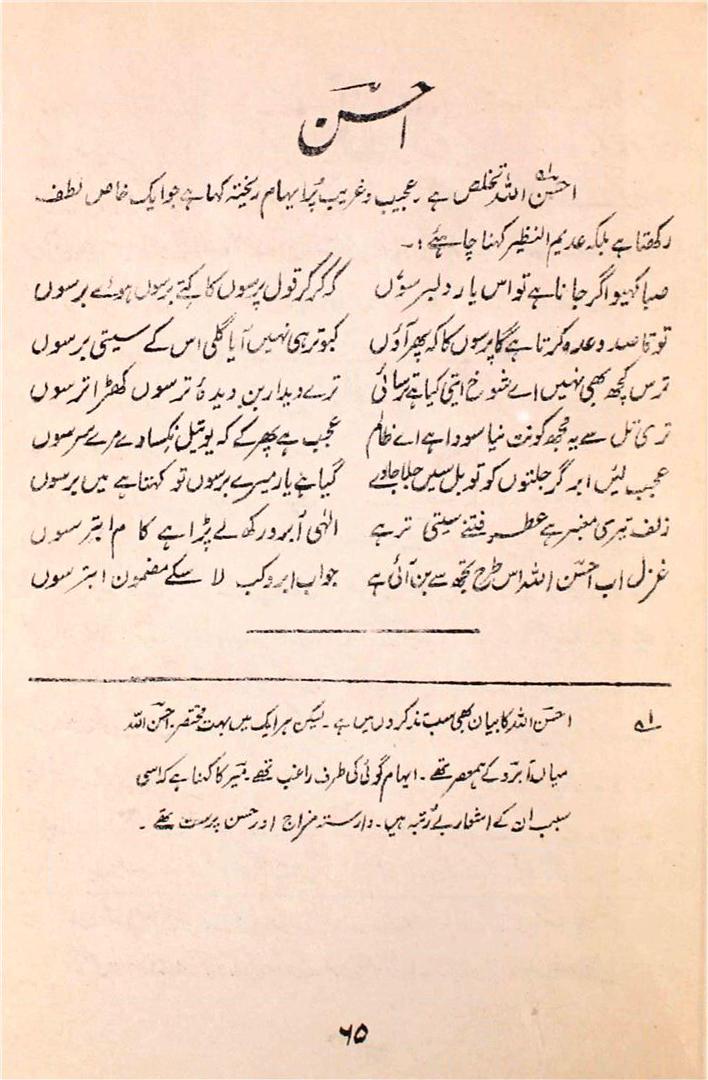 احسن
احسن اللہ تخلص ہے۔ عجیب و غریب پُر ایہام ریختہ کہا ہے جو ایک خاص لطف
رکھتا ہے بلکہ عدیم النظیر کہنا چاہئے :۔
صبا کہیو اگر جانا ہے تو اس یار دلبر سوں کہ کر کر قول پرسوں کا کہتے برسوں ہوئے برسوں
تو قاصد وعدہ کرتا ہے گا پرسوں کا کہ پھر آؤں کبوتر ہی نہیں آیا گلی اس کے سیتی برسوں
ترس کچھ بھی نہیں اے شوخ اتی کیا ہے ترسائی ترے دیدار بن دیدۂ ترسوں کھڑا ترسوں
تری تل سے یہ مجھ کو نت نیا سودا ہے اے ظالم عجب ہے پھر کے کہ یو تیل نکسا دے مرے سرسوں
عجب نیں ابر گر جلتوں کو تو بل سیں جلا جاوے گیا ہے یار میرے برسوں تو کہتا ہے میں برسوں
زلف تیری معنبر ہے عطر فتنے سیتی تر ہے الٰہی آبرو رکھ لے پڑا ہے کام ابتر سوں
غزل اب احسن اللہ اس طرح تجھ سے بن آئی ہے جواب ابرو کب لا سکے مضمون ابتر سوں
لہ احسن اللہ کا بیان بھی سب تذکروں میں ہے۔ لیکن ہر ایک میں بہت مختصر۔ احسن اللہ
میاں آبرو کے ہمعصر تھے۔ ایہام گوئی کی طرف راغب تھے۔ میر کا کہنا ہے کہ اسی
سبب ان کے اشعار بے رتبہ ہیں۔ وارستہ مزاج اور حسن پرست تھے۔
۶۵